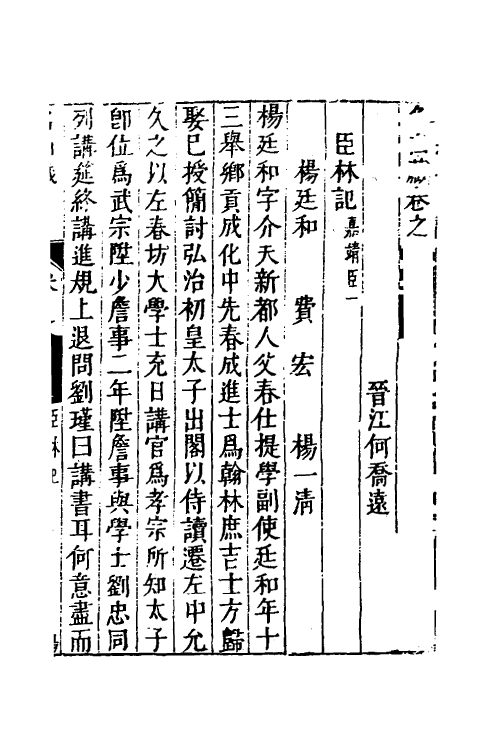 卷之
晉江何喬遠
臣林記嘉靖臣一
楊廷和 費宏 楊一淸
楊廷和字介夫新都人父春仕提學副使廷和年十
三舉鄉貢成化中先春成進士爲翰林庶吉士方歸
娶已授簡討弘治初皇太子出閣以侍讀遷左中允
久之以左春坊大學士充日講官爲孝宗所知太子
卽位爲武宗陞少詹事二年陞詹事與學士劉忠同
列講筵終講進規上退問劉瑾曰講書耳何意盡而
臣林記